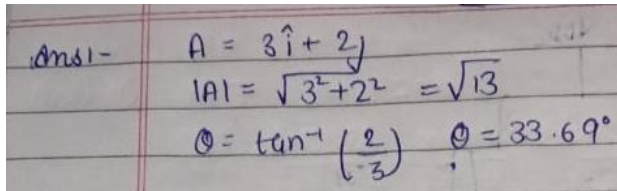 Ans1- A = 3î + 2j
|A| = √3²+2² = √13
θ = tan⁻¹ (2/3) θ = 33.69°